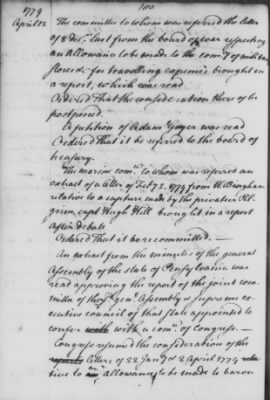 100
1779
April 12
The committee to whom was referred the letter
of 8 dec.r last from the board of war respecting
an Allowance to be made to the com.y of military
stores for travelling expences brought in
a report, which was read
Ordered That the consideration thereof be
postponed.
A petition of Adam Goyer was read
Ordered That it be referred to the board of
treasury.
The marine com.ee to whom was referred an
extract of a letter of Feby 2. 1779 from W Bingham
relative to a capture made by the privateer Pil-
grim capt Hugh Hill brought in a report
After debate
Ordered that it be recommitted. —
An extract from the minutes of the general
Assembly of the state of Pensylvania was
read approving the report of the joint com-
mittee of the gen.l Assembly & supreme ex-
ecutive council of that state appointed to
confer with a com.ee of Congress. —
Congress resumed the consideration of the
letters of 22 Jan.y & 2 April 1779 rela-
tive to an allowance to be made to baron